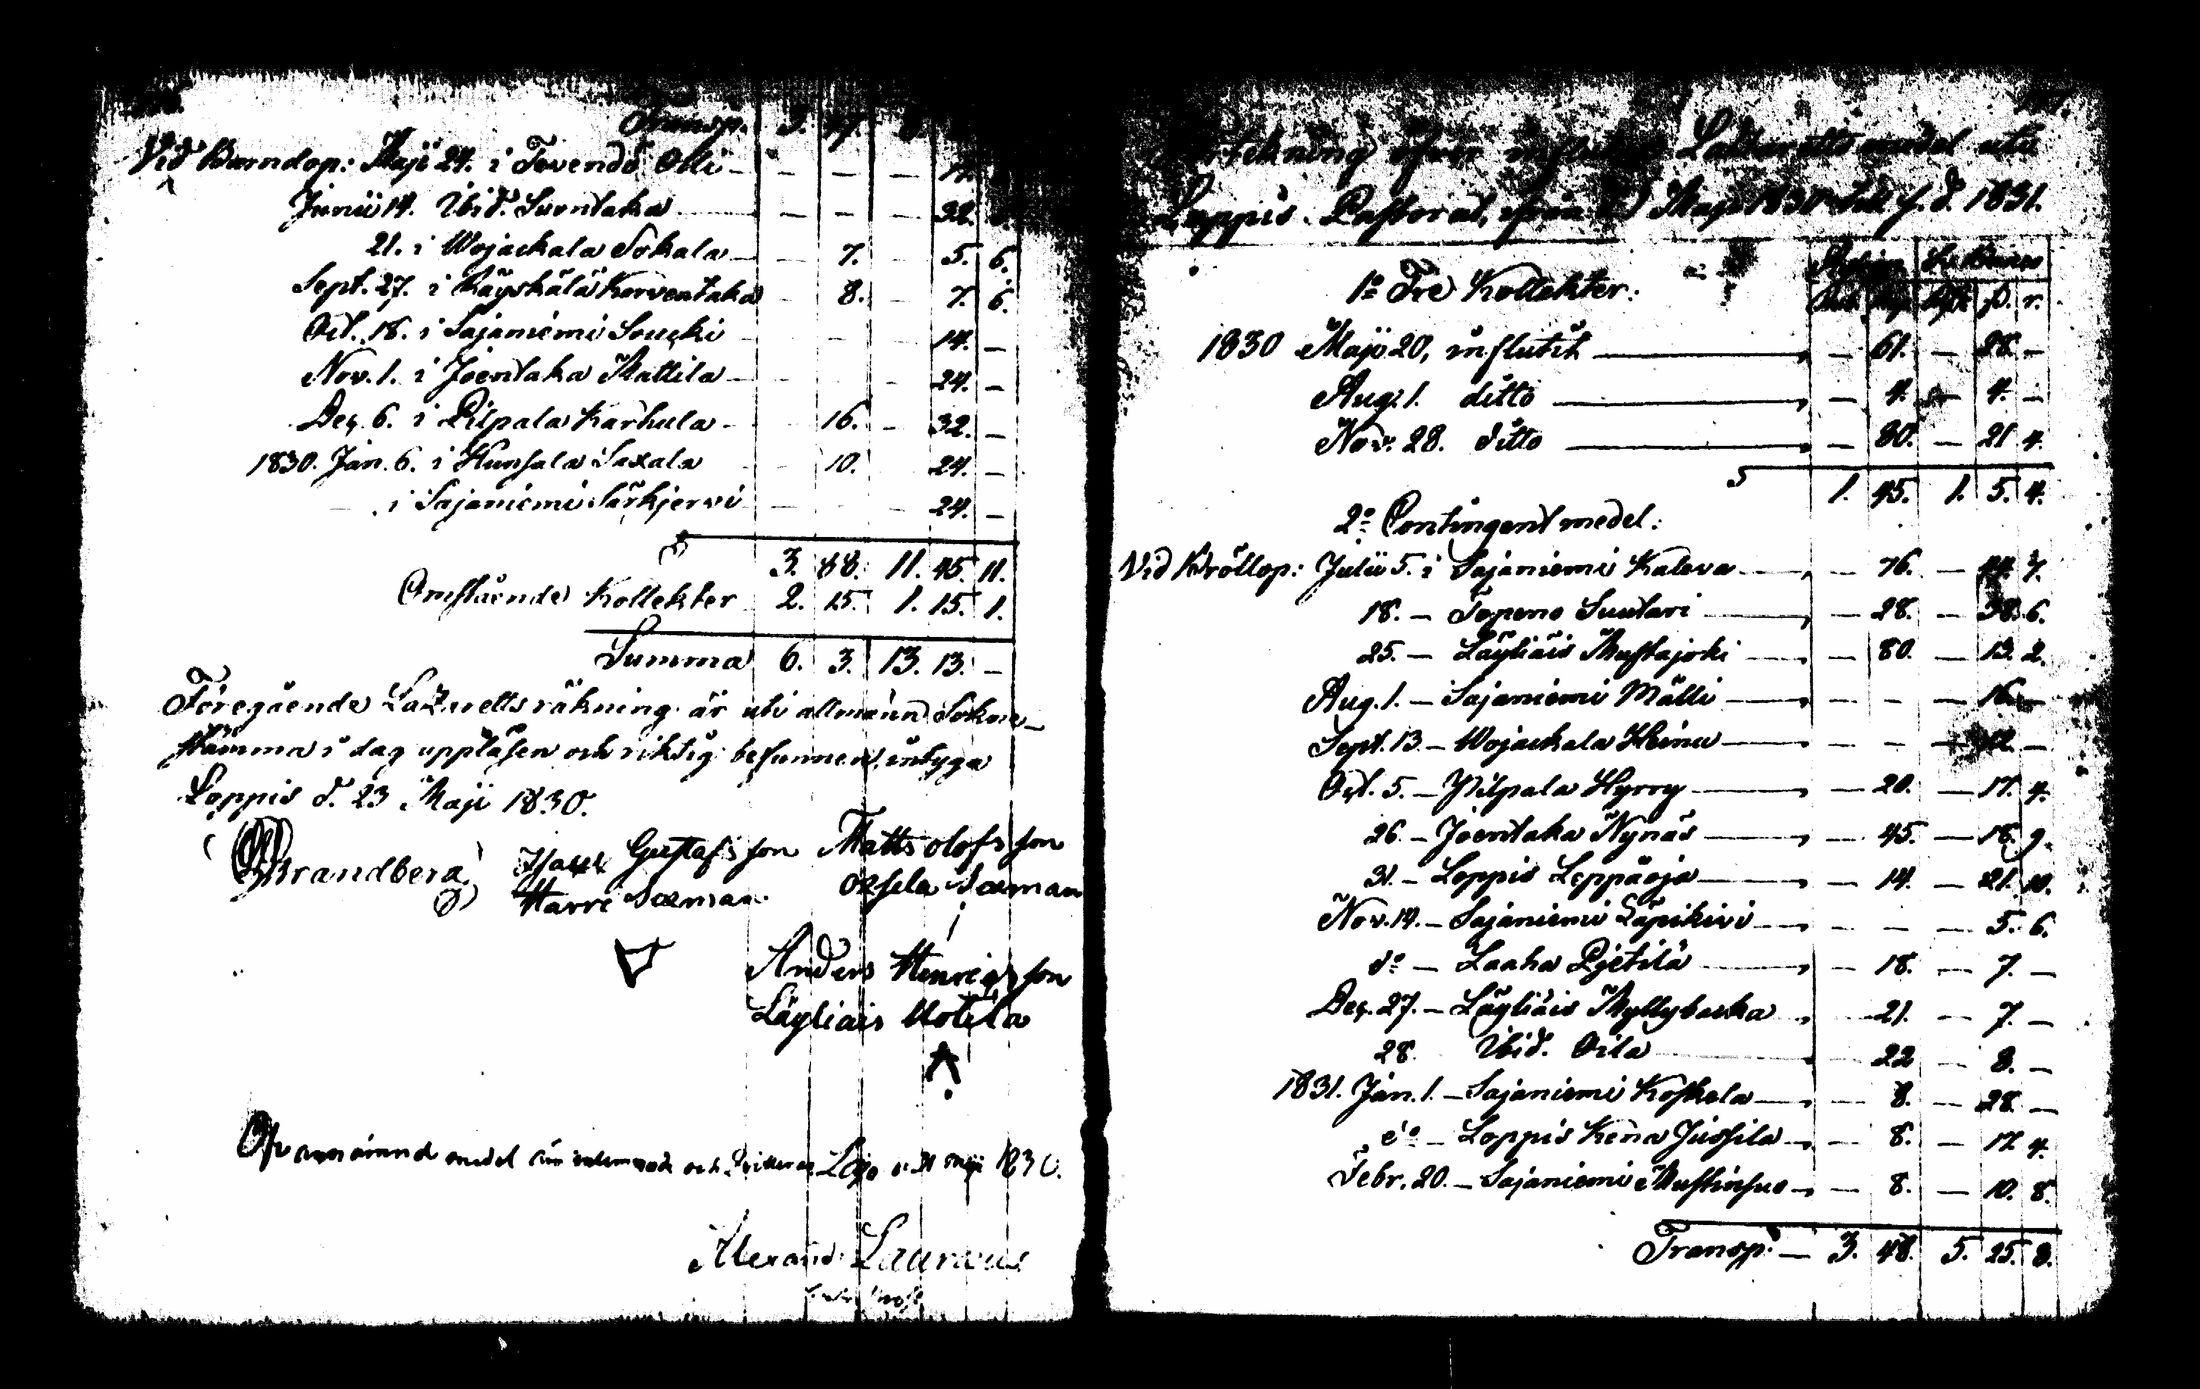 Transp. 3. 47.
Vid Barndop: Maji 24. i Tevendö Olli — — — — 12.
Junii 14. Ibid. Suontaka — — — 28.
21. i Wojackala Sokala — — 7. — 5. 6.
Sept. 27. i Käyskälä Korventaka — 8. — 7. 6.
Oct. 18. i Sajaniemi Soucki — 14. —
Nov. 1. i Joentaka Mattila — 24. —
Dec. 6. i Pilpala Karhula — 16. — 32. —
1830. Jan. 6. i Hunsala Saxala 10. 24. —
— i Sajaniemi Särkjerwi 24. —
3. 88. 11. 45. 11.
Omstående Kollekter 2. 15. 1. 15. 1.
Summa 6. 3. 13. 13. —
Föregående Lazaretts räkning är uti allmänn Sokne-
stämma i dag uppläsen och riktig befunnen, intyga
Loppis d. 23 Maji 1830.
Brandberg Isaac Gustafsson Matts olofsson
Harri Sexman Sexman
Anders Henricsson
Läyliäis Uotila
medel och Lojo d. 31 Maji 1830.
Alexand. Lauræus
Förtekning öfver influtne Lazaretts medel uti
Loppis Pastorat, ifrån Maji 1830 till s. d. 1831.
1:o Tre Kollekter:
1830 Maji 20, influtit — 61. — 28. —
Aug. 1. ditto — 4. — 4. —
Nov. 28. ditto — 80. — 21 4.
S 1. 45. 1. 5. 4.
2:o Contingent medel:
Vid Bröllop: Julii 5. i Sajaniemi Kaleva — 76. — 44. 7.
18. — Topeno Suutari — 28. — 38. 6.
25. — Läyliäis Mustajoki — 80. — 13. 2.
Aug. 1. — Sajaniemi Mälli — — — 16. —
Sept. 13 — Wojackala Heinu — — — 12. —
Oct. 5. — Pilpala Hyrry — 20. — 17. 4.
26 — Joentaka Nynäs — 45. — 18. 9.
31. — Loppis Leppäoja — 14. — 21. 10.
Nov. 14. — Sajaniemi Läpikivi — — — 5. 6.
d:o — Laaka Pjetilä — 18. — 7. —
Dec. 27. — Läyliäis Myllybacka — 21. — 7. —
28. Ibid. Oila — 22 — 8. —
1831. Jan. 1. — Sajaniemi Koskela — 8. — 28. —
d:o — Loppis Kena Jussila — 8. — 17. 4.
Febr. 20. — Sajaniemi Mustinsuo — 8. — 10. 8.
Transp. — 3. 48. 5. 25. 8.